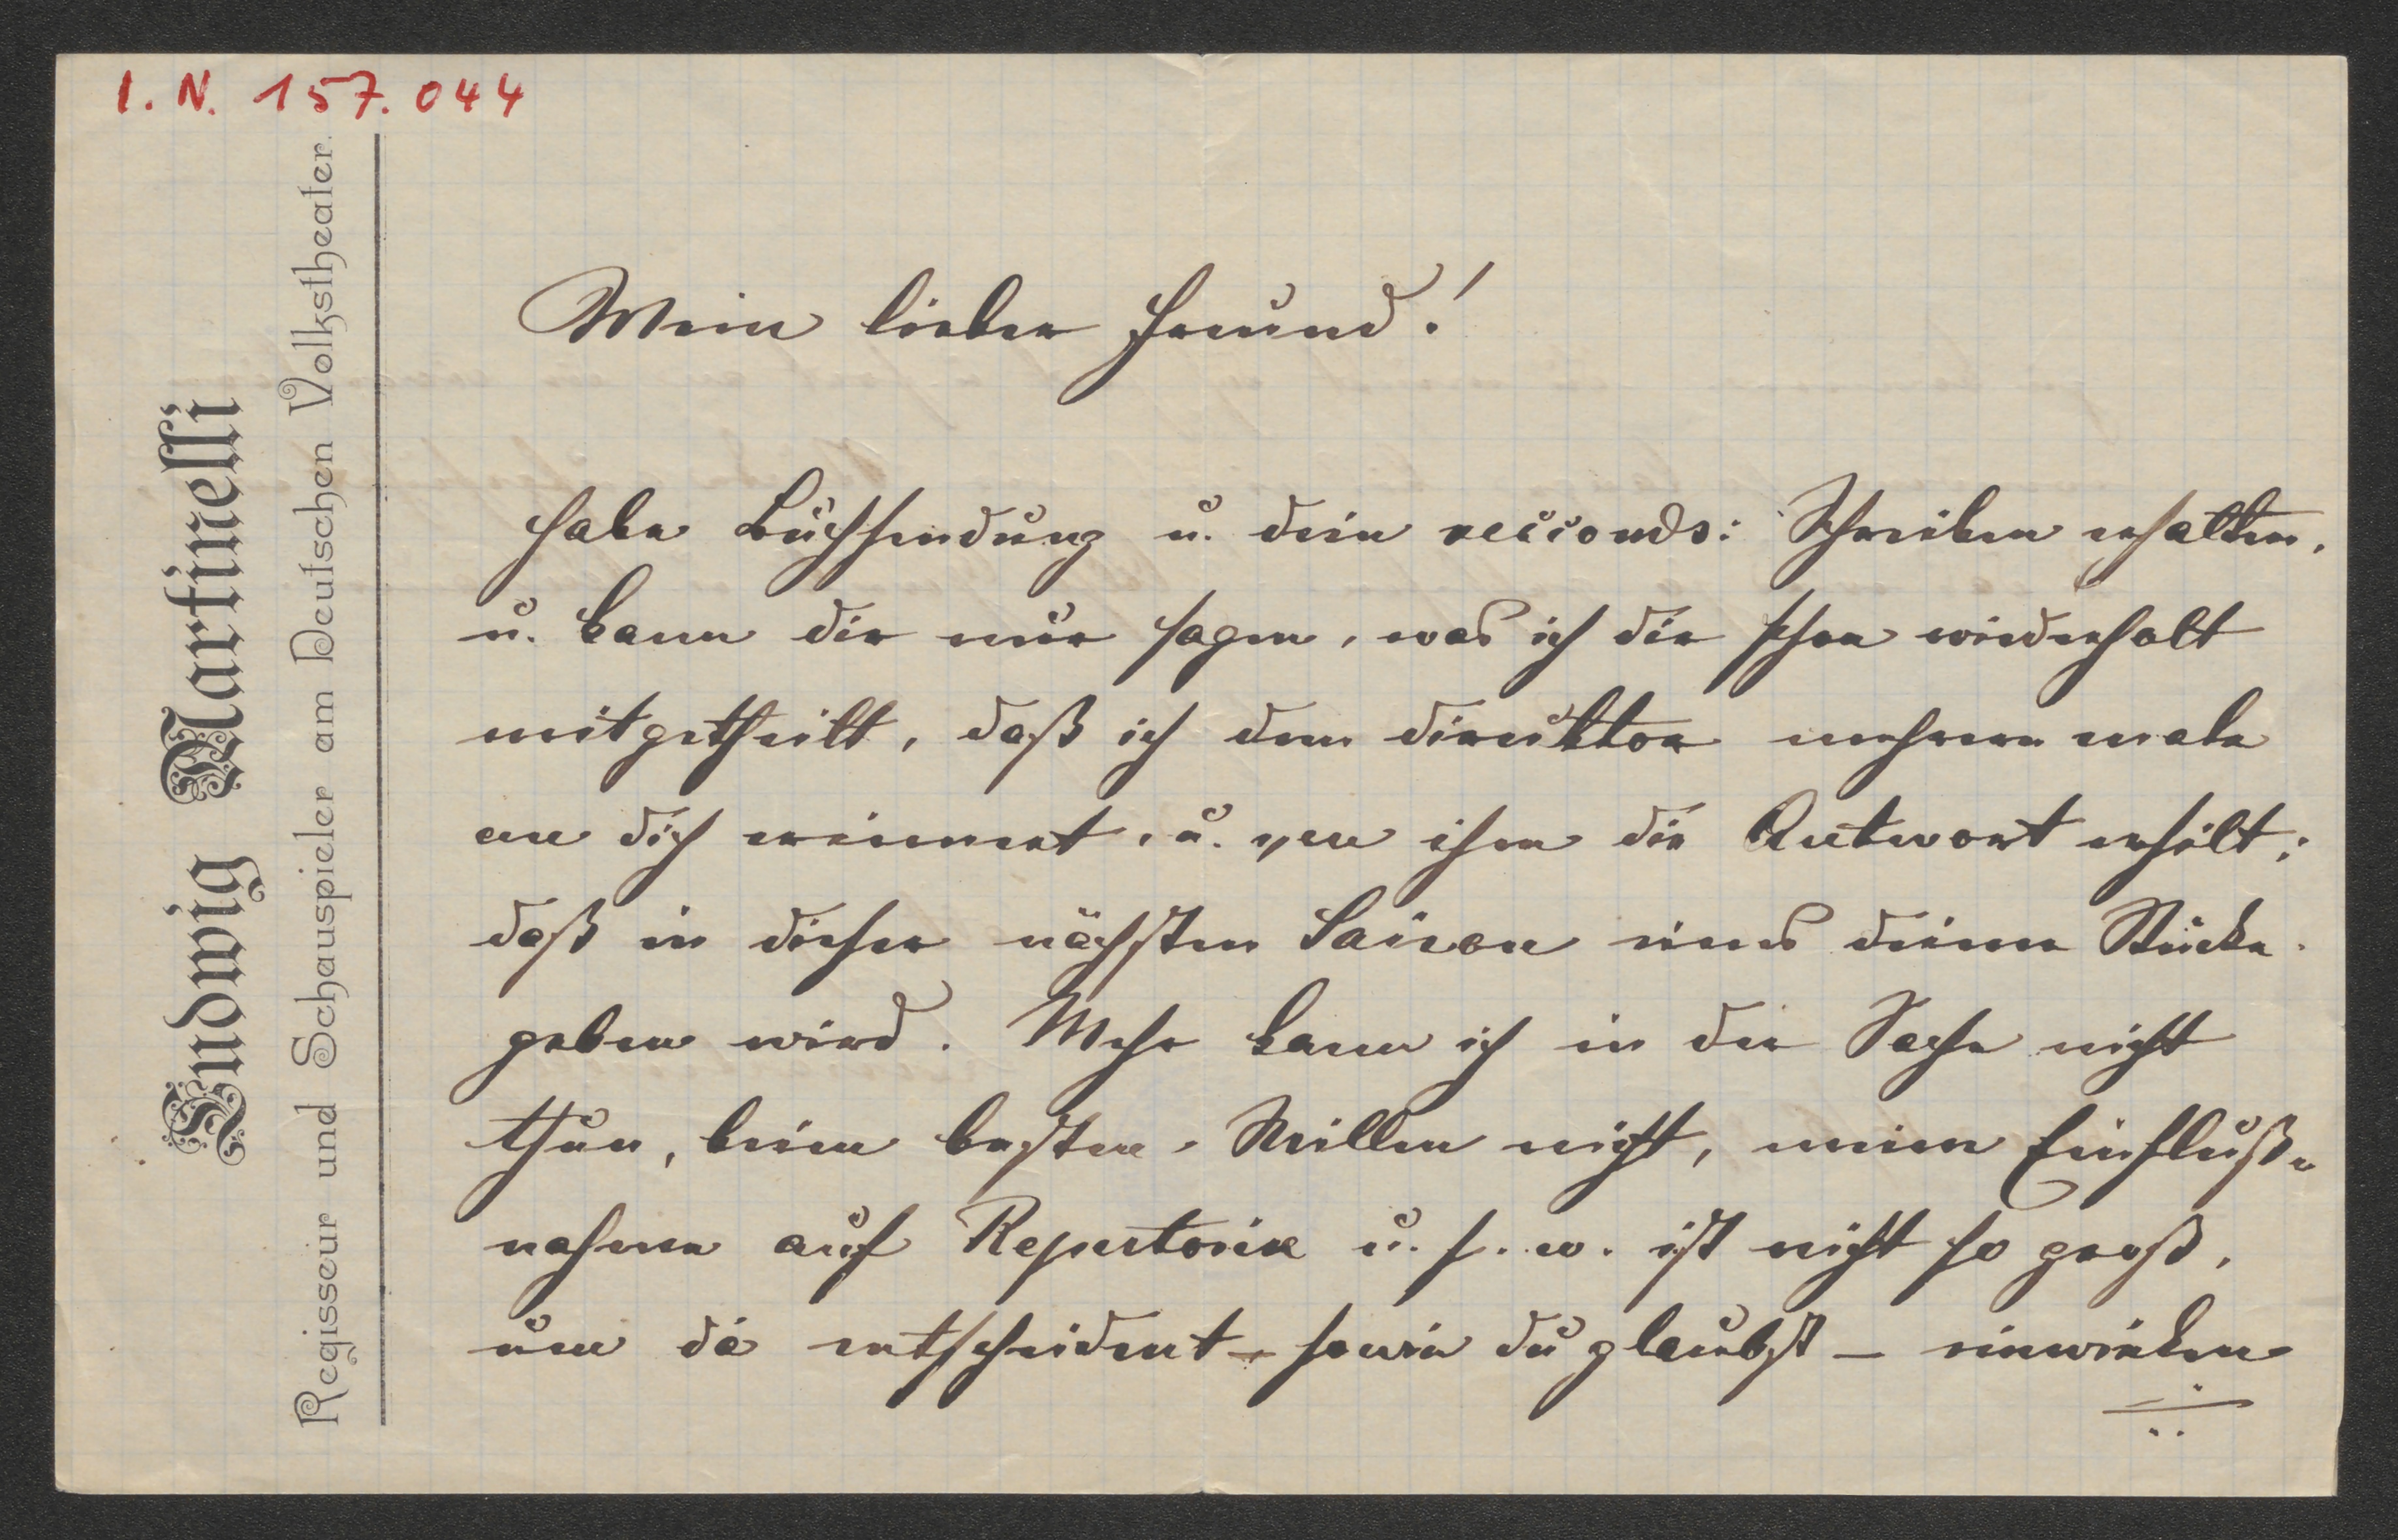 I. N. 157.044
Ludwig Martinelli
Regisseur und Schauspieler am Deutschen Volkstheater.
Mein lieber Freund!
habe Buchsendung u. dein recconds: Schreiben erhalten,
u. kann dir nur sagen, was ich dir schon wiederholt
mitgetheilt, daß ich den Direktor mehrere male
an dich erinnert, u. von ihm die Antwort erhilt:
daß in dieser nächsten Saison eines deiner Stücke
geben wird. Mehr kann ich in der Sache nicht
thun, beim besten Willen nicht, meine Einfluß-
nahme auf Repertoire u. s. w. ist nicht so groß,
um da entscheident – sowie du glaubst – einwirken